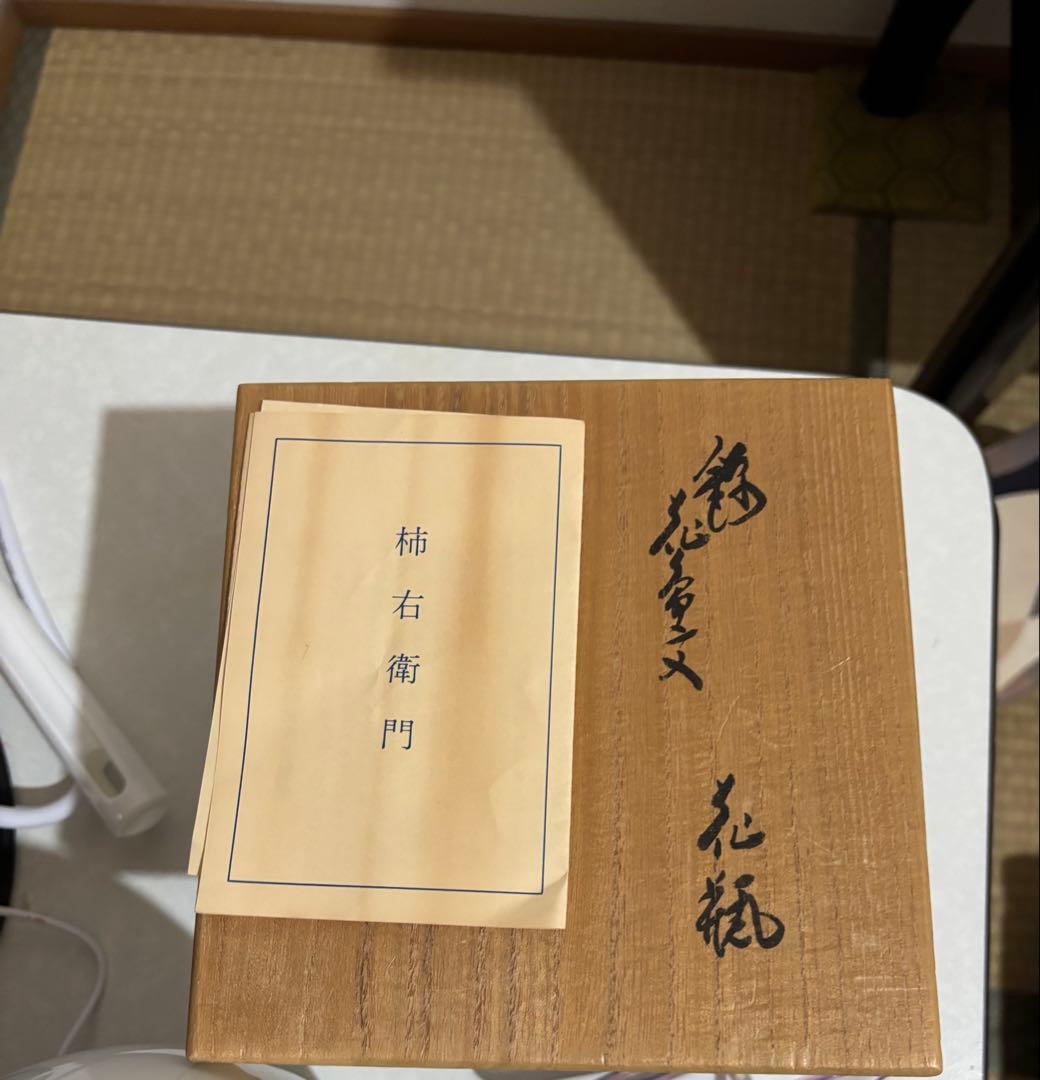 錦
花鳥文
花瓶
柿右衛門